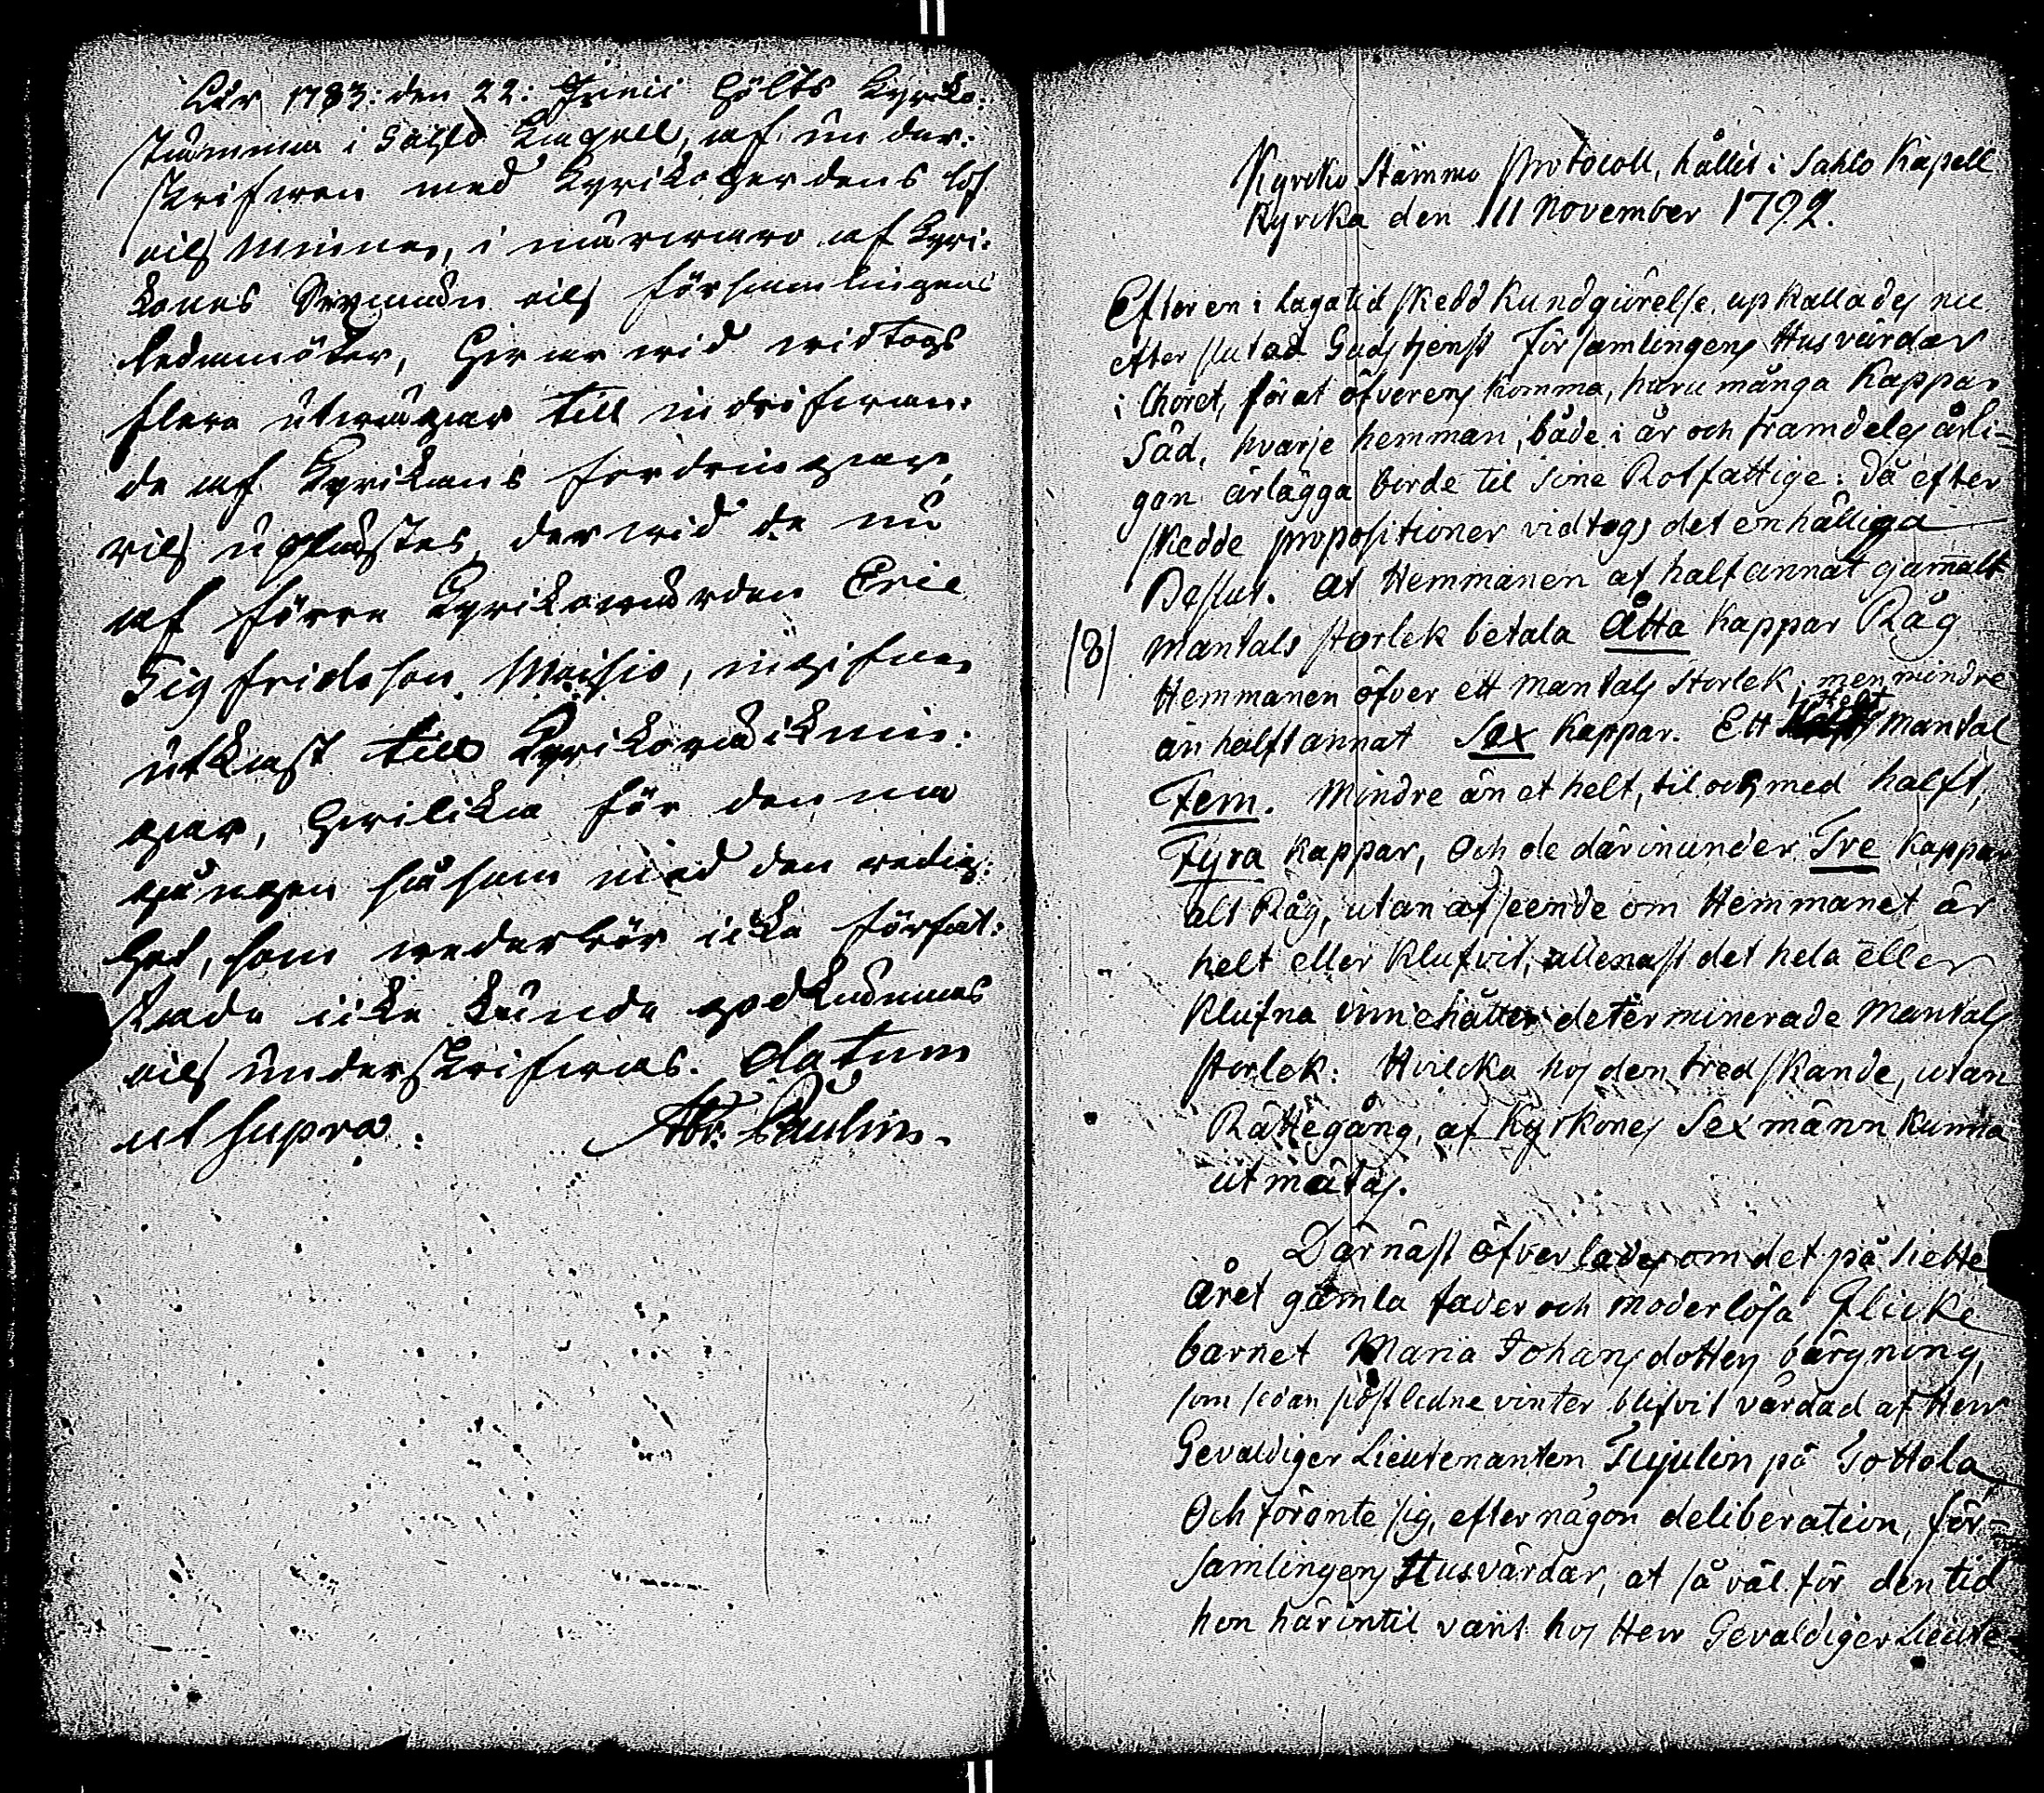 Åhr 1783: den 22: Junii hölts Kyrko-
stämma i Sahlo Kapell, af under-
skrifwen med Kyrkoherdens lof
och minne, i närwaro af Kyr-
kones Sexmän och församlingens
ledamöter, hwarwid widtogs
flere utwägar till indrifwan-
de af Kyrkans fordringar,
och uplästes, derwid de nu
af förre Kyrkowärden Eric
Sigfridsson Moisio, ingifne
utkast till Kyrkoräknin-
gar, hwilka för denna
gången såsom med den redig-
het, som wederbör icke förfat-
tade icke kunde godkännas
och underskrifwas. Datum
ut supra. Abr: Paulin.
Kyrcko Stämmo Protocoll, hållit i Sahlo Kapell
Kyrcka den 11 November 1792.
Efter en i laga tid skedd kundgiörelse, upkallades nu
efter slutad Gudstjenst Församlingens Husvärdar
i Choret, för at öfverens komma, huru många Kappar
Säd, hvarje hemman, både i år och framdeles årli-
gen ärlägga borde til sine Rotfattige: Då efter
skedde propositioner vidtogs det enhälliga
Beslut. at Hemmanen af halfannat gamalt
/8/ mantals storlek betala Åtta kappar Råg
Hemmanen öfver ett mantals storlek, men mindre
än halftannat Sex Kappar. Ett helt mantal
Fem. Mindre än et helt, til och med halft,
Fyra kappar, Och de därinunder Tre kappar
alt Råg, utan afseende om Hemmanet är
helt eller klufvit, allenast det hela eller
klufna innehåller determinerade Mantals
storlek: Hvilcka hos den tredskande, utan
Rättegång, af Kyrkones Sexmänn kunna
utmätas.
Därnäst öfverlades om det på siette
året gamla fader och moderlösa Flicke
barnet Maria Johansdotters bärgning,
som sedan sistledne vinter blifvit vårdad af Herr
Gevaldiger Lieutenanten Tujulin på Tottola
Och förente sig, efter någon deliberation, för-
samlingens Husvärdar, at så väl för den tid
hon härintil varit hos Herr Gevaldiger Lieute-